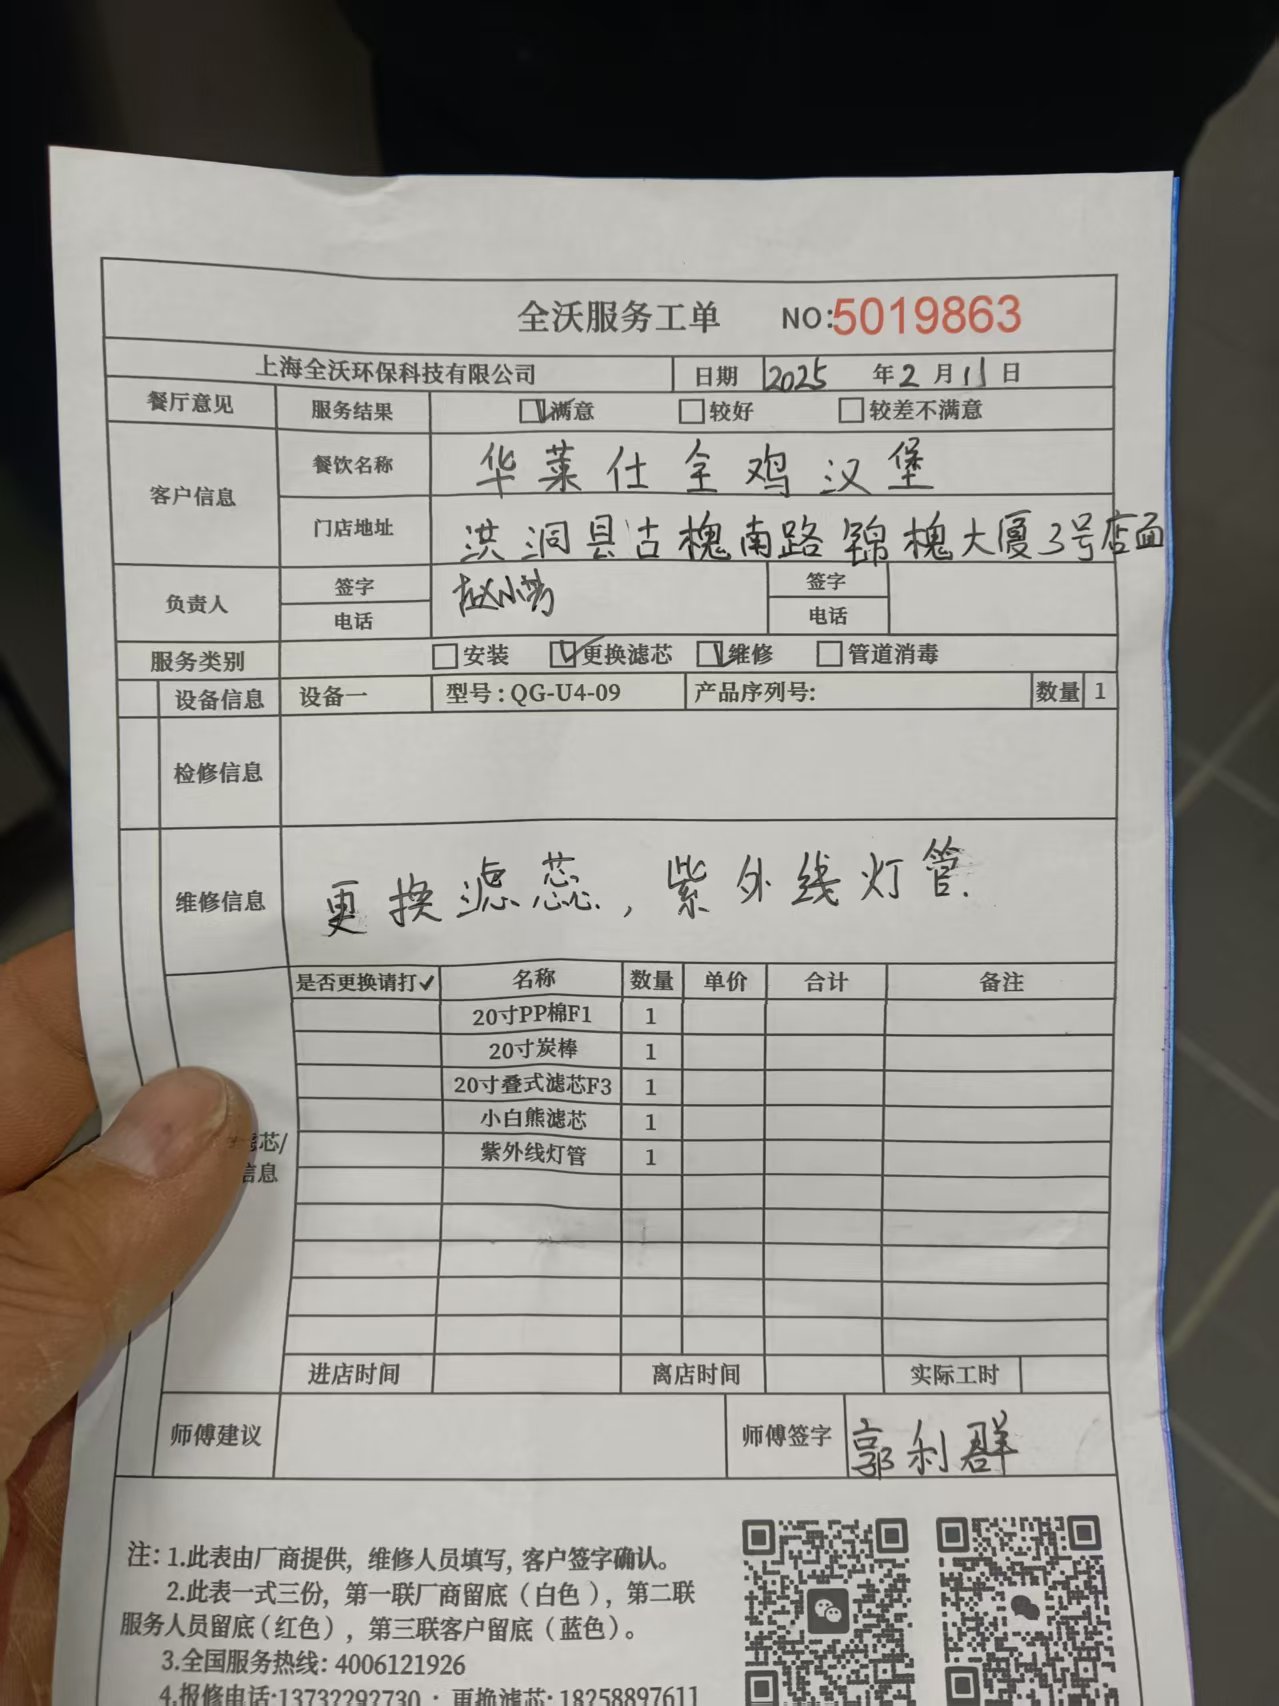 全沃服务工单 NO:5019863
上海全沃环保科技有限公司 日期 2025 年 2 月 11 日
餐厅意见 服务结果 满意 较好 较差不满意
客户信息 餐饮名称 华莱仕全鸡汉堡
门店地址 洪洞县古槐南路锦槐大厦3号店面
负责人 签字 赵小芳 签字
电话 电话
服务类别 安装 更换滤芯 维修 管道消毒
设备信息 设备一 型号:QG-U4-09 产品序列号: 数量 1
检修信息
维修信息 更换滤蕊,紫外线灯管.
是否更换请打✓ 名称 数量 单价 合计 备注
20寸PP棉F1 1
20寸炭棒 1
20寸叠式滤芯F3 1
小白熊滤芯 1
紫外线灯管 1
芯/
信息
进店时间 离店时间 实际工时
师傅建议 师傅签字 郭利群
注:1.此表由厂商提供,维修人员填写,客户签字确认。
2.此表一式三份,第一联厂商留底(白色),第二联
服务人员留底(红色),第三联客户留底(蓝色)。
3.全国服务热线:4006121926
4.报修电话:13732292730 ; 更换滤芯:18258897611